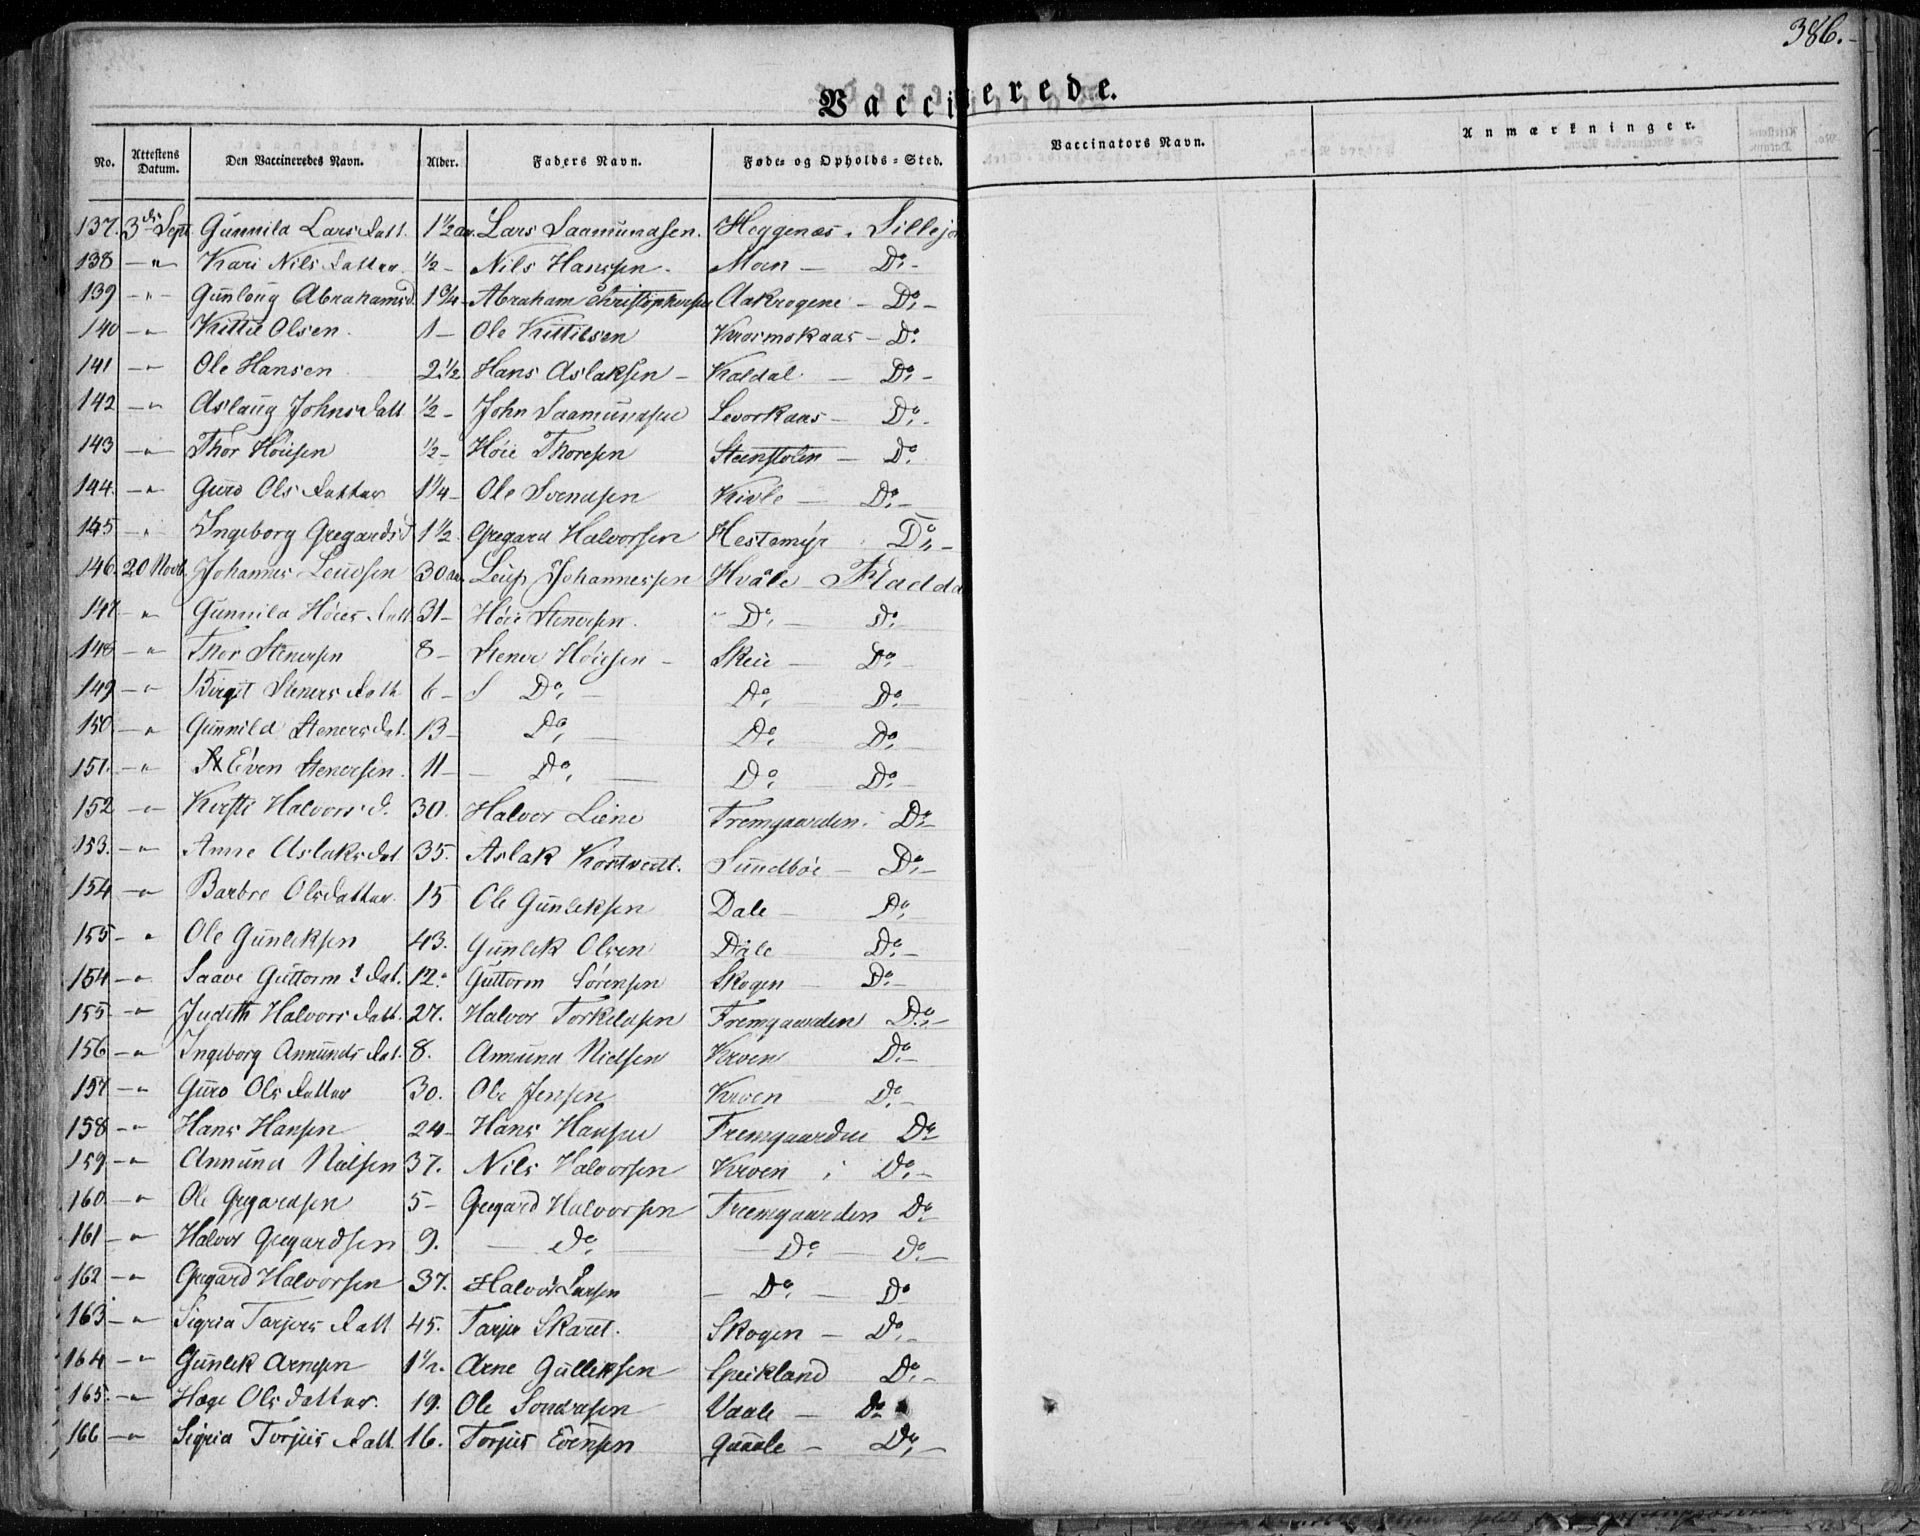 386.
Vaccinerede.
No. Attestens Datum. Den Vaccineredes Navn. Alder. Faders Navn. Føde- og Opholds-Sted. Vaccinators Navn. Anmærkninger.
137. 3de Sept. Gunnild Larsdatt. 1½ aar. Lars Saamundsen. Heggenæs. Sillejo
138 - " Kari Nilsdatter ½ - Nils Hanssen. Moen - Do -
139 - " - Gunloug Abrahamsd. 1¾ - Abraham Christophersen Aakrogene - Do -
140 - " Kittil Olsen. 1 - Ole Kittilsen Kvosmokaas - Do
141 - " Ole Hansen 2½ Hans Aslaksen - Kaldal - Do -
142 - " Aslaug Johnsdatt ½ - John Saamundsen Levorkaas - Do -
143 - " Thor Höiesen ½ - Höie Thoresen Steenstolen - Do
144. - " Guro Olsdatter 1¼ - Ole Svendsen Kivle - Do -
145 - " Ingeborg Gregardsd 1½ Gregard Halvorsen Hestemyr Do -
146. 20 Novb. Johannes Leufsen 30 aar. Leuf Johannessen Hvåle - Fladda
147 - " Gunnild Höiesdatt 31 - Höie Stenersen. - Do - do
148 - " Thor Stenersen 8 - Stener Höiesen - Skeie - Do -
149 - " Birgit Stenersdatt 6 - S Do - Do Do -
150 - " Gunnild Stenersdat. 13 - Do - Do - Do -
151. - " Even Stenersen. 11 - - Do - Do - Do -
152 - " Kirsti Halvorsd. 30. Halvor Liene Fremgaarden. Do -
153. - " Anne Aslaksdat 35. Aslak Sundböe - Do -
154 - " Barbro Olsdatter. 15 Ole Gunleksen Dale - Do
155 - " Ole Gunleksen 43. Gunlek Olsen Dale Do -
154 - " Saave Guttormsdat. 12. Guttorm Sörensen Skogen - Do -
155 - " Judith Halvorsdatt. 27. Halvor Torkildsen Fremgaarden Do -
156 - " Ingeborg Anundsdat. 8. Anmund Nielsen Kroen Do -
157 - " Guro Olsdatter 30. Ole Jensen Kroen - Do -
158 - " Hans Hansen 24 - Hans Hansen Fremgaarden Do
159 - " Anmund Nielsen 37. Nils Halvorsen Kroen i Do -
160 - " Ole Gregardsen 5 - Gregard Halvorsen Fremgaarden Do -
161 - " Halvor Gregardsen 9. - Do - - Do - Do -
162 - " Gregard Halvorsen 37. Halvor Larsen - Do - Do
163 - " Sigrid Torjersdatt 45. Torjer Skaret. Skogen - Do -
164 - " Gunlek Arnesen 1½. Arne Gulleksen Speikland Do -
165. - " Hæge Olsdatter. 19. Ole Sondresen Vaale - Do
166 - " Sigrid Torjusdatt 16. Torjus Evensen Do -